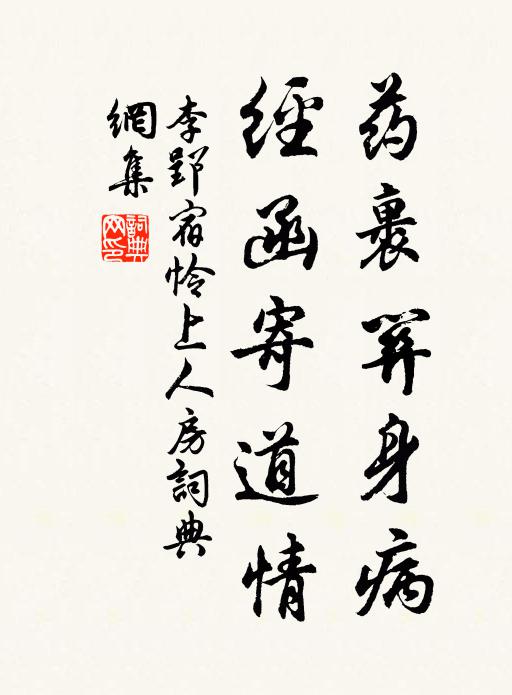 药裹关身病
經函寄道情
李郢宿怜上人房詞典
網集
詞典網印